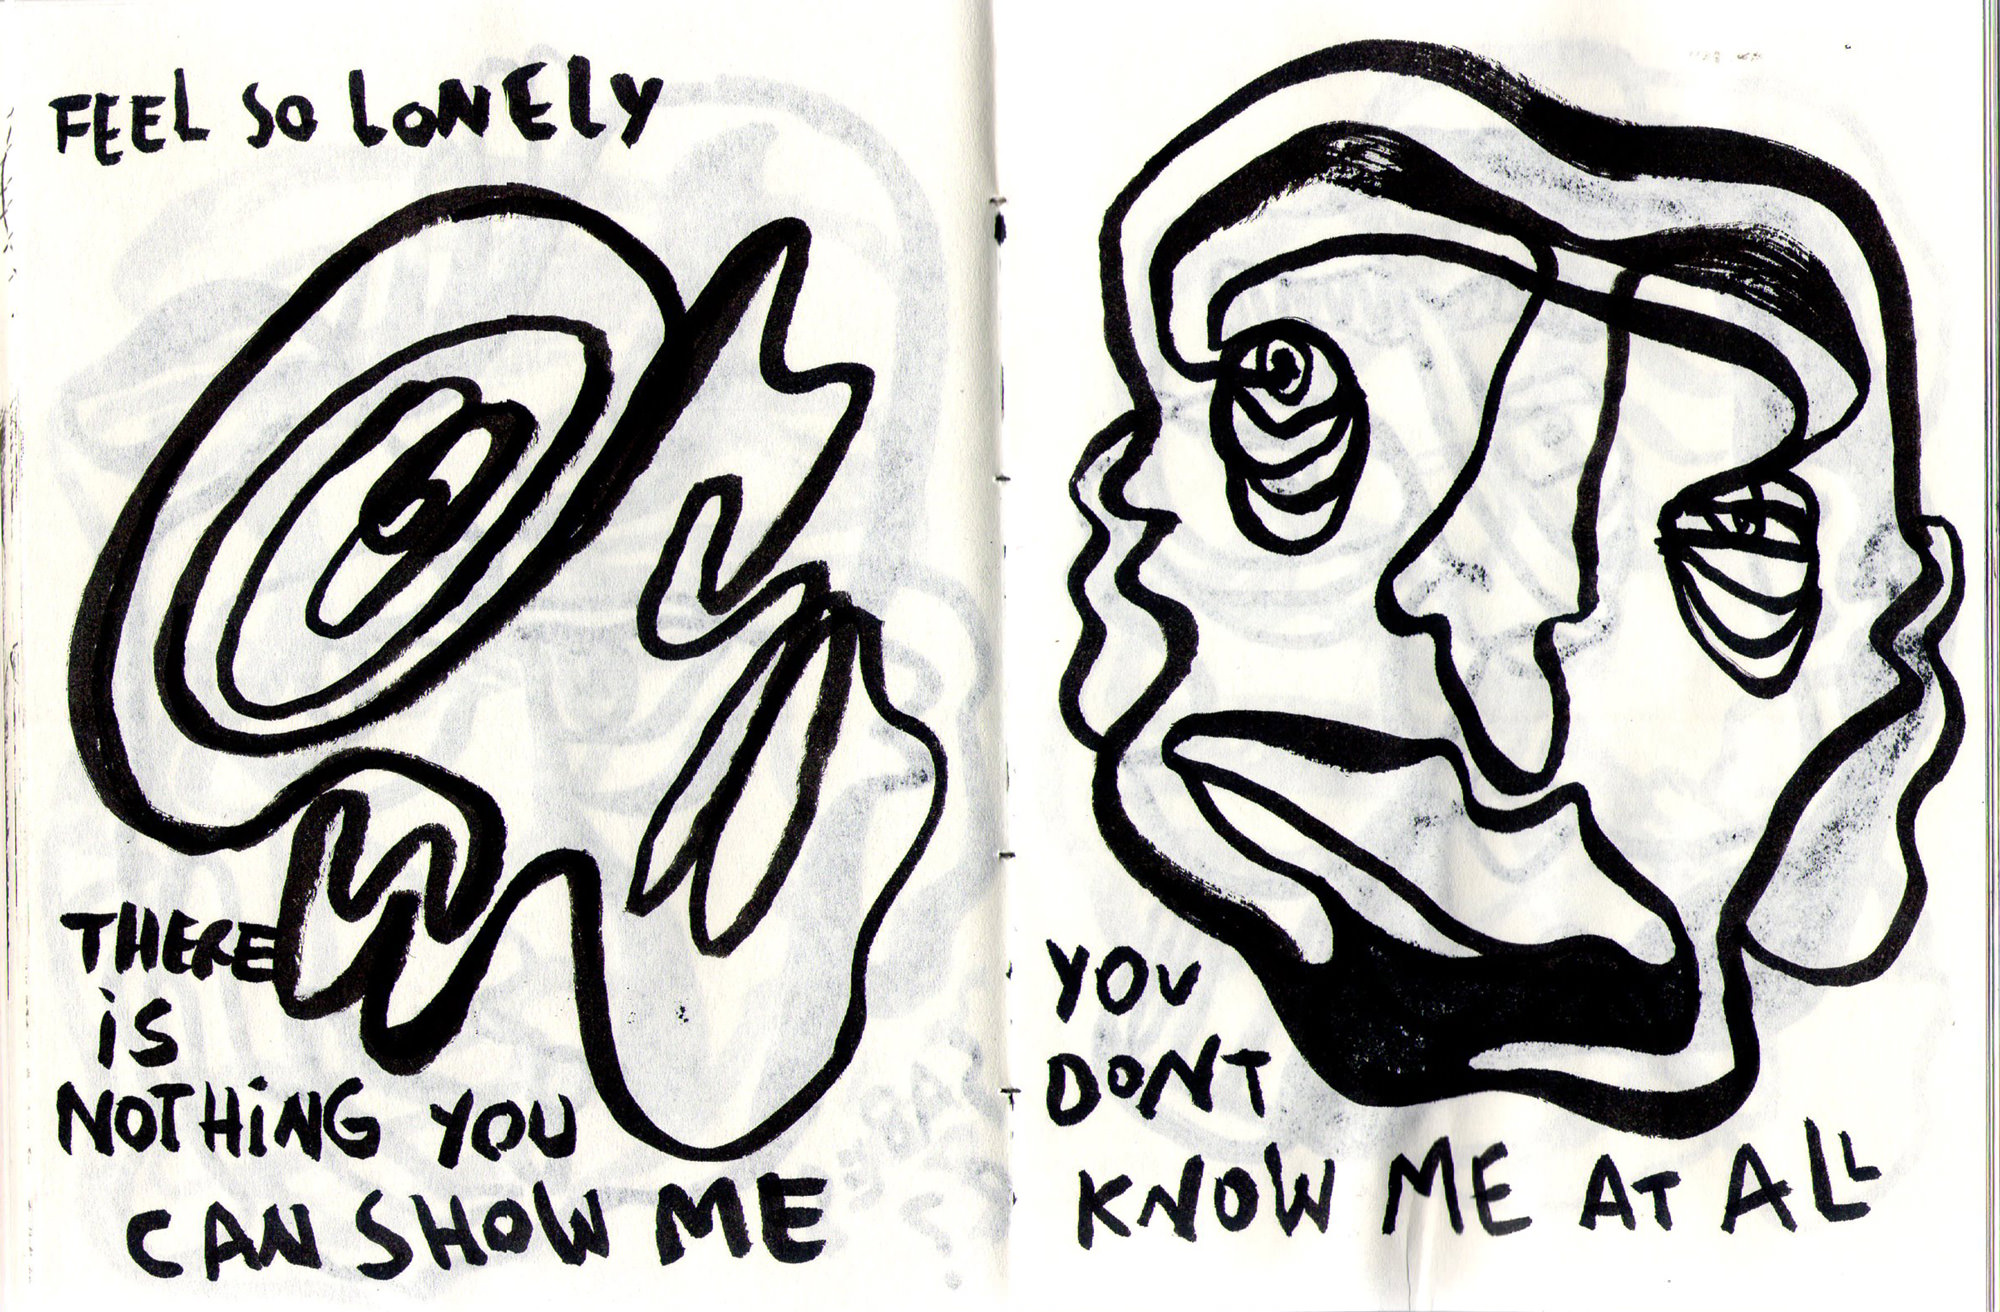 FEEL SO LONELY
THERE
iS
NOTHiNG YOU
CAN SHOW ME
YOU
DONT
KNOW ME AT ALL